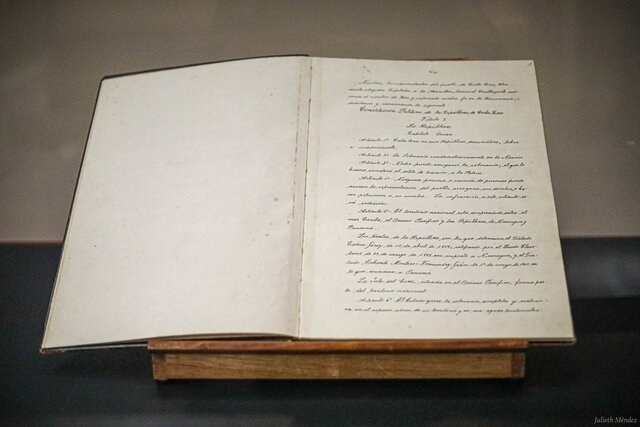 Nosotros, los representantes del pueblo de Costa Rica, libre-
mente elegidos Diputados a la Asamblea Nacional Constituyente, invo-
cando el nombre de Dios y reiterando nuestra fe en la Democracia,
decretamos y sancionamos la siguiente
Constitución Política de la República de Costa Rica
Título I
La República
Capítulo Único
Artículo 1º Costa Rica es una República democrática, libre
e independiente.
Artículo 2º La Soberanía reside exclusivamente en la Nación.
Artículo 3º Nadie puede arrogarse la soberanía; el que lo
hiciere cometerá el delito de traición a la Patria.
Artículo 4º Ninguna persona o reunión de personas puede
asumir la representación del pueblo, arrogarse sus derechos, o ha-
cer peticiones a su nombre. La infracción a este artículo se-
rá sedición.
Artículo 5º El territorio nacional está comprendido entre el
mar Caribe, el Océano Pacífico y las Repúblicas de Nicaragua y
Panamá.
Los límites de la República son los que determina el Tratado
Cañas-Jerez de 15 de abril de 1858, ratificado por el Laudo Cleve-
land de 22 de marzo de 1888, con respecto a Nicaragua, y el Tra-
tado Echandi Montero-Fernández Jaén de 1º de mayo de 1941 en
lo que concierne a Panamá.
La Isla del Coco, situada en el Océano Pacífico, forma par-
te del territorio nacional.
Artículo 6º El Estado ejerce la soberanía completa y exclusi-
va en el espacio aéreo de su territorio y en sus aguas territoriales
Julieth Méndez